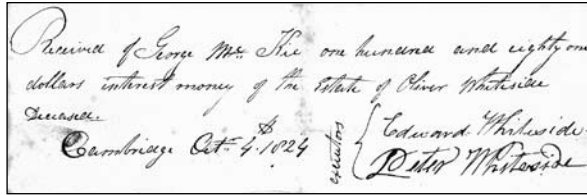 Received of George Mc. Kie one hundred and eighty one
dollars interest money of the Estate of Oliver Whiteside
Deceased.
Cambridge Oct. 4th. 1824
executors
Edward Whiteside
Peter Whiteside